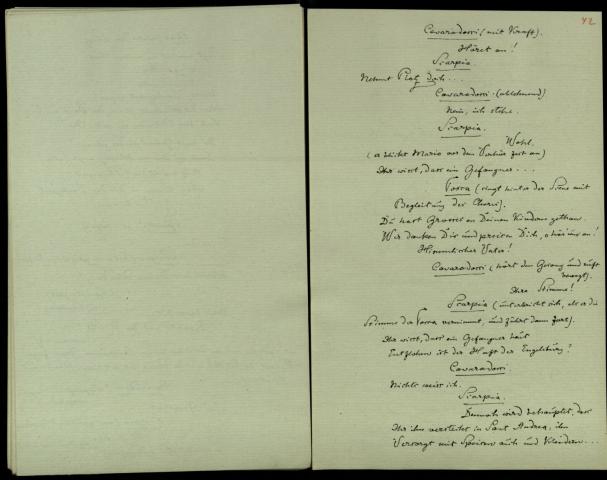 42
Cavaradossi (mit Kraft).
Höret an!
Scarpia.
Nehmt Platz doch...
Cavaradossi (ablehnend)
Nein, ich stehe.
Scarpia.
Wohl.
(er blickt Mario vor dem Verhör fest an)
Ihr wisst, dass ein Gefangner...
Tosca (singt hinter der Scene mit
Begleitung des Chores).
Du hast Grosses an Deinen Kindern gethan.
Wir danken Dir und preisen Dich, o hör uns an!
Himmlischer Vater!
Cavaradossi (hört den Gesang und ruft
erregt).
Ihre Stimme!
Scarpia (unterbricht sich, als er die
Stimme der Tosca vernimmt, und fährt dann fort).
Ihr wisst, dass ein Gefangner heut
Entflohen ist der Haft der Engelsburg?
Cavaradossi.
Nichts weiss ich.
Scarpia.
Dennoch wird behauptet, dass
Ihr ihn versteckt in Sant Andrea, ihn
Versorgt mit Speisen auch und Kleidern...